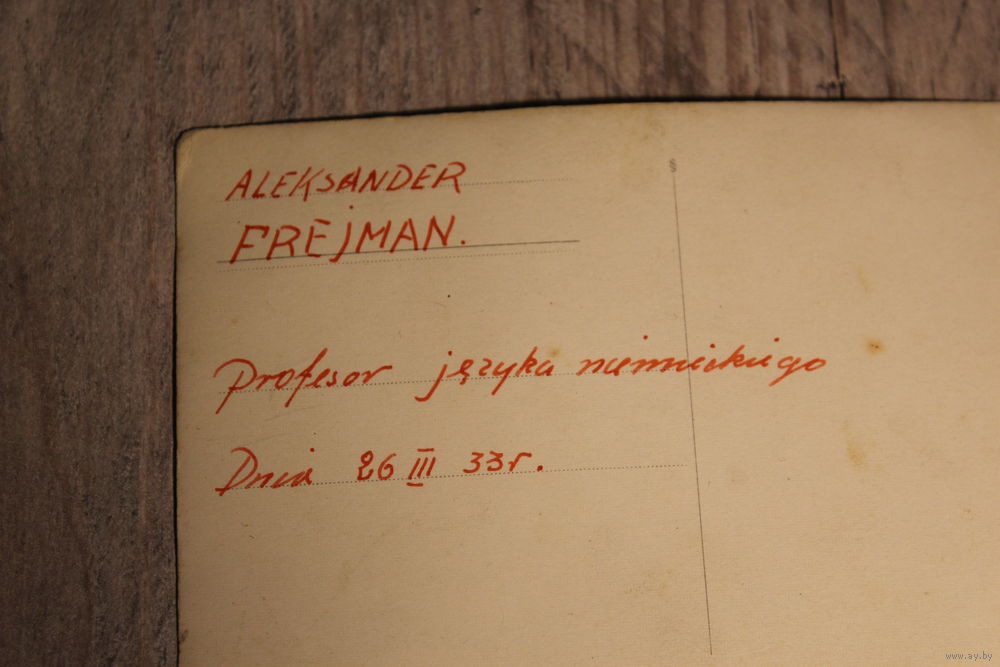 ALEKSANDER
FREJMAN.
Profesor języka niemieckiego
Dnia 26 III 33r.
www.ay.by